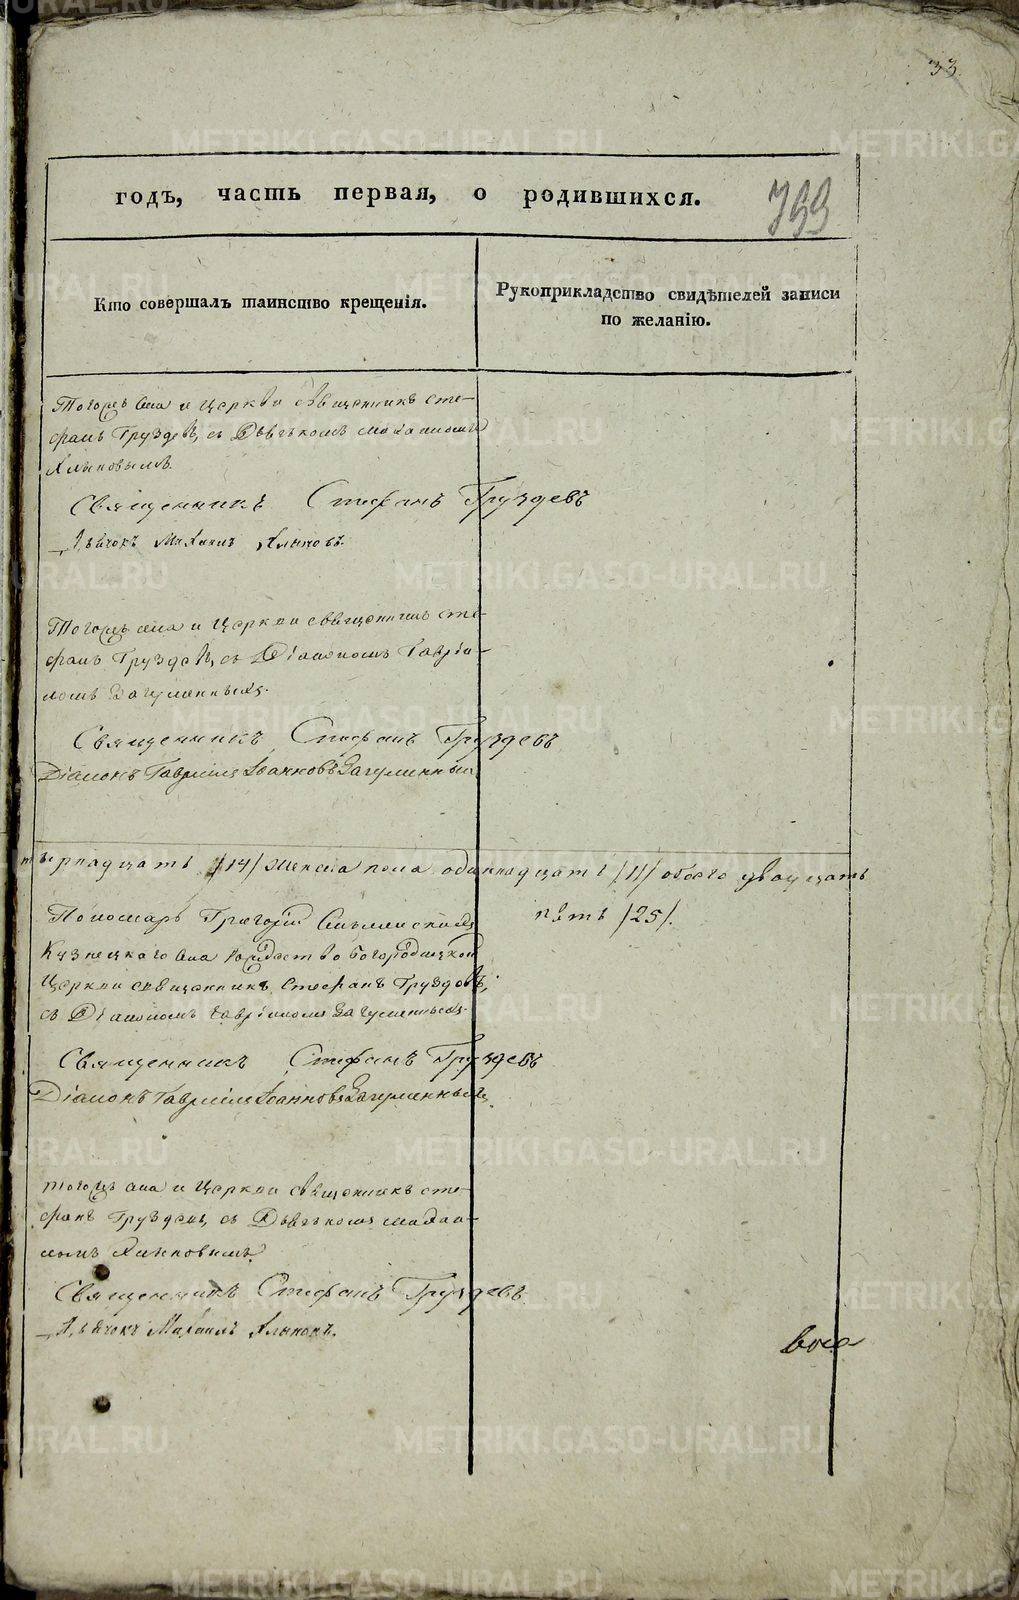 33.
годъ, часть первая, о родившихся.
799
Кто совершалъ таинство крещенія.
Рукоприкладство свидѣтелей записи
по желанію.
Тогожъ села и Церкви священникъ Сте-
фанъ Груздевъ, съ Дьячкомъ Михаиломъ
Хлыновымъ.
Священникъ Стефанъ Груздевъ
Дьячокъ Михаилъ Хлыновъ.
Тогожъ села и Церкви священникъ Сте-
фанъ Груздевъ, съ Діакономъ Гаврiи-
ломъ Загуменныхъ.
Священникъ Стефанъ Груздевъ
Діаконъ Гавріилъ Іоанновъ Загуменныхъ
тырнадцать /14/ Женска пола одиннадцать /11/ обоего двадцать
пять /25/.
Пономарь Григорій
Кузнецкаго села Рождество Богородицкой
Церкви священникъ Стефанъ Груздевъ,
съ Діакономъ Гавріиломъ Загуменныхъ.
Священникъ Стефанъ Груздевъ
Діаконъ Гавріилъ Іоанновъ Загуменныхъ.
Тогожъ села и Церкви священникъ Сте-
фанъ Груздевъ, съ Дьячкомъ Михаи-
ломъ Хлыновымъ.
Священникъ Стефанъ Груздевъ.
Дьячокъ Михаилъ Хлыновъ.
METRIKI.GASO-URAL.RU